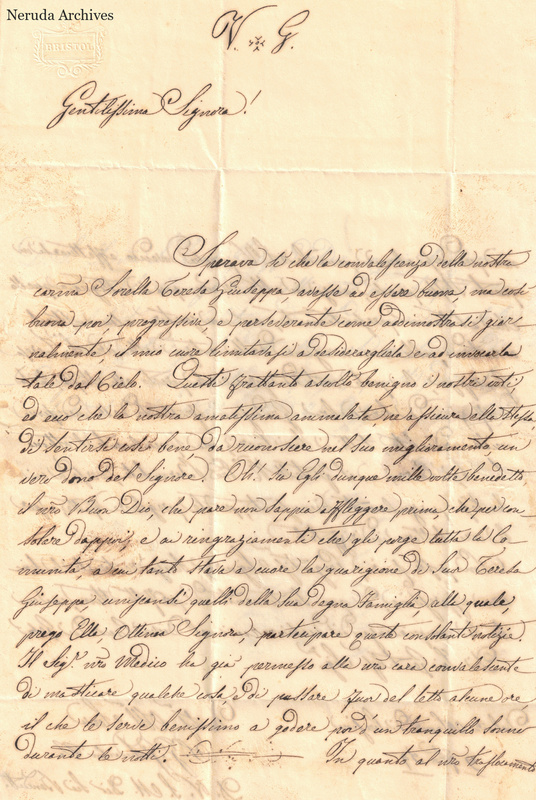 Neruda Archives
BRISTOL
V. G.
Gentilissima Signora!
Sperava sì che la convalescenza della nostra
carissima Sorella Teresa Giuseppa, avesse ad essere buona, ma così
buona poi, progressiva, e perseverante come addimostrasi gior-
nalmente, il mio cuore limitavasi a desiderargliela e ad invocarla
tale dal Cielo. Questi frattanto ascoltò benigno i nostri voti
ed ecco che la nostra amatissima ammalata, ne assicura ella stessa,
di sentirsi così bene da riconoscere nel suo miglioramento, un
vero dono del Signore. Oh! sia Egli dunque mille volte benedetto
il nro Buon Dio, che pare non sappia affliggere prima che per con-
solare dappoi, e ai ringraziamenti che gli porge tutta la Co-
munità, a cui tanto stava a cuore la guarigione di Suor Teresa
Giuseppa uniscansi quelli della Sua degna Famiglia, alla quale,
prego Ella Ottima Signora, partecipare queste constanti notizie.
Il Sigr nro Medico ha già permesso alla nra cara convalescente
di masticare qualche cosa, e di passare fuor del letto alcune ore,
il che le serve benissimo a godere poi d'un tranquillo sonno
durante la notte. In quanto al nro traslocamento